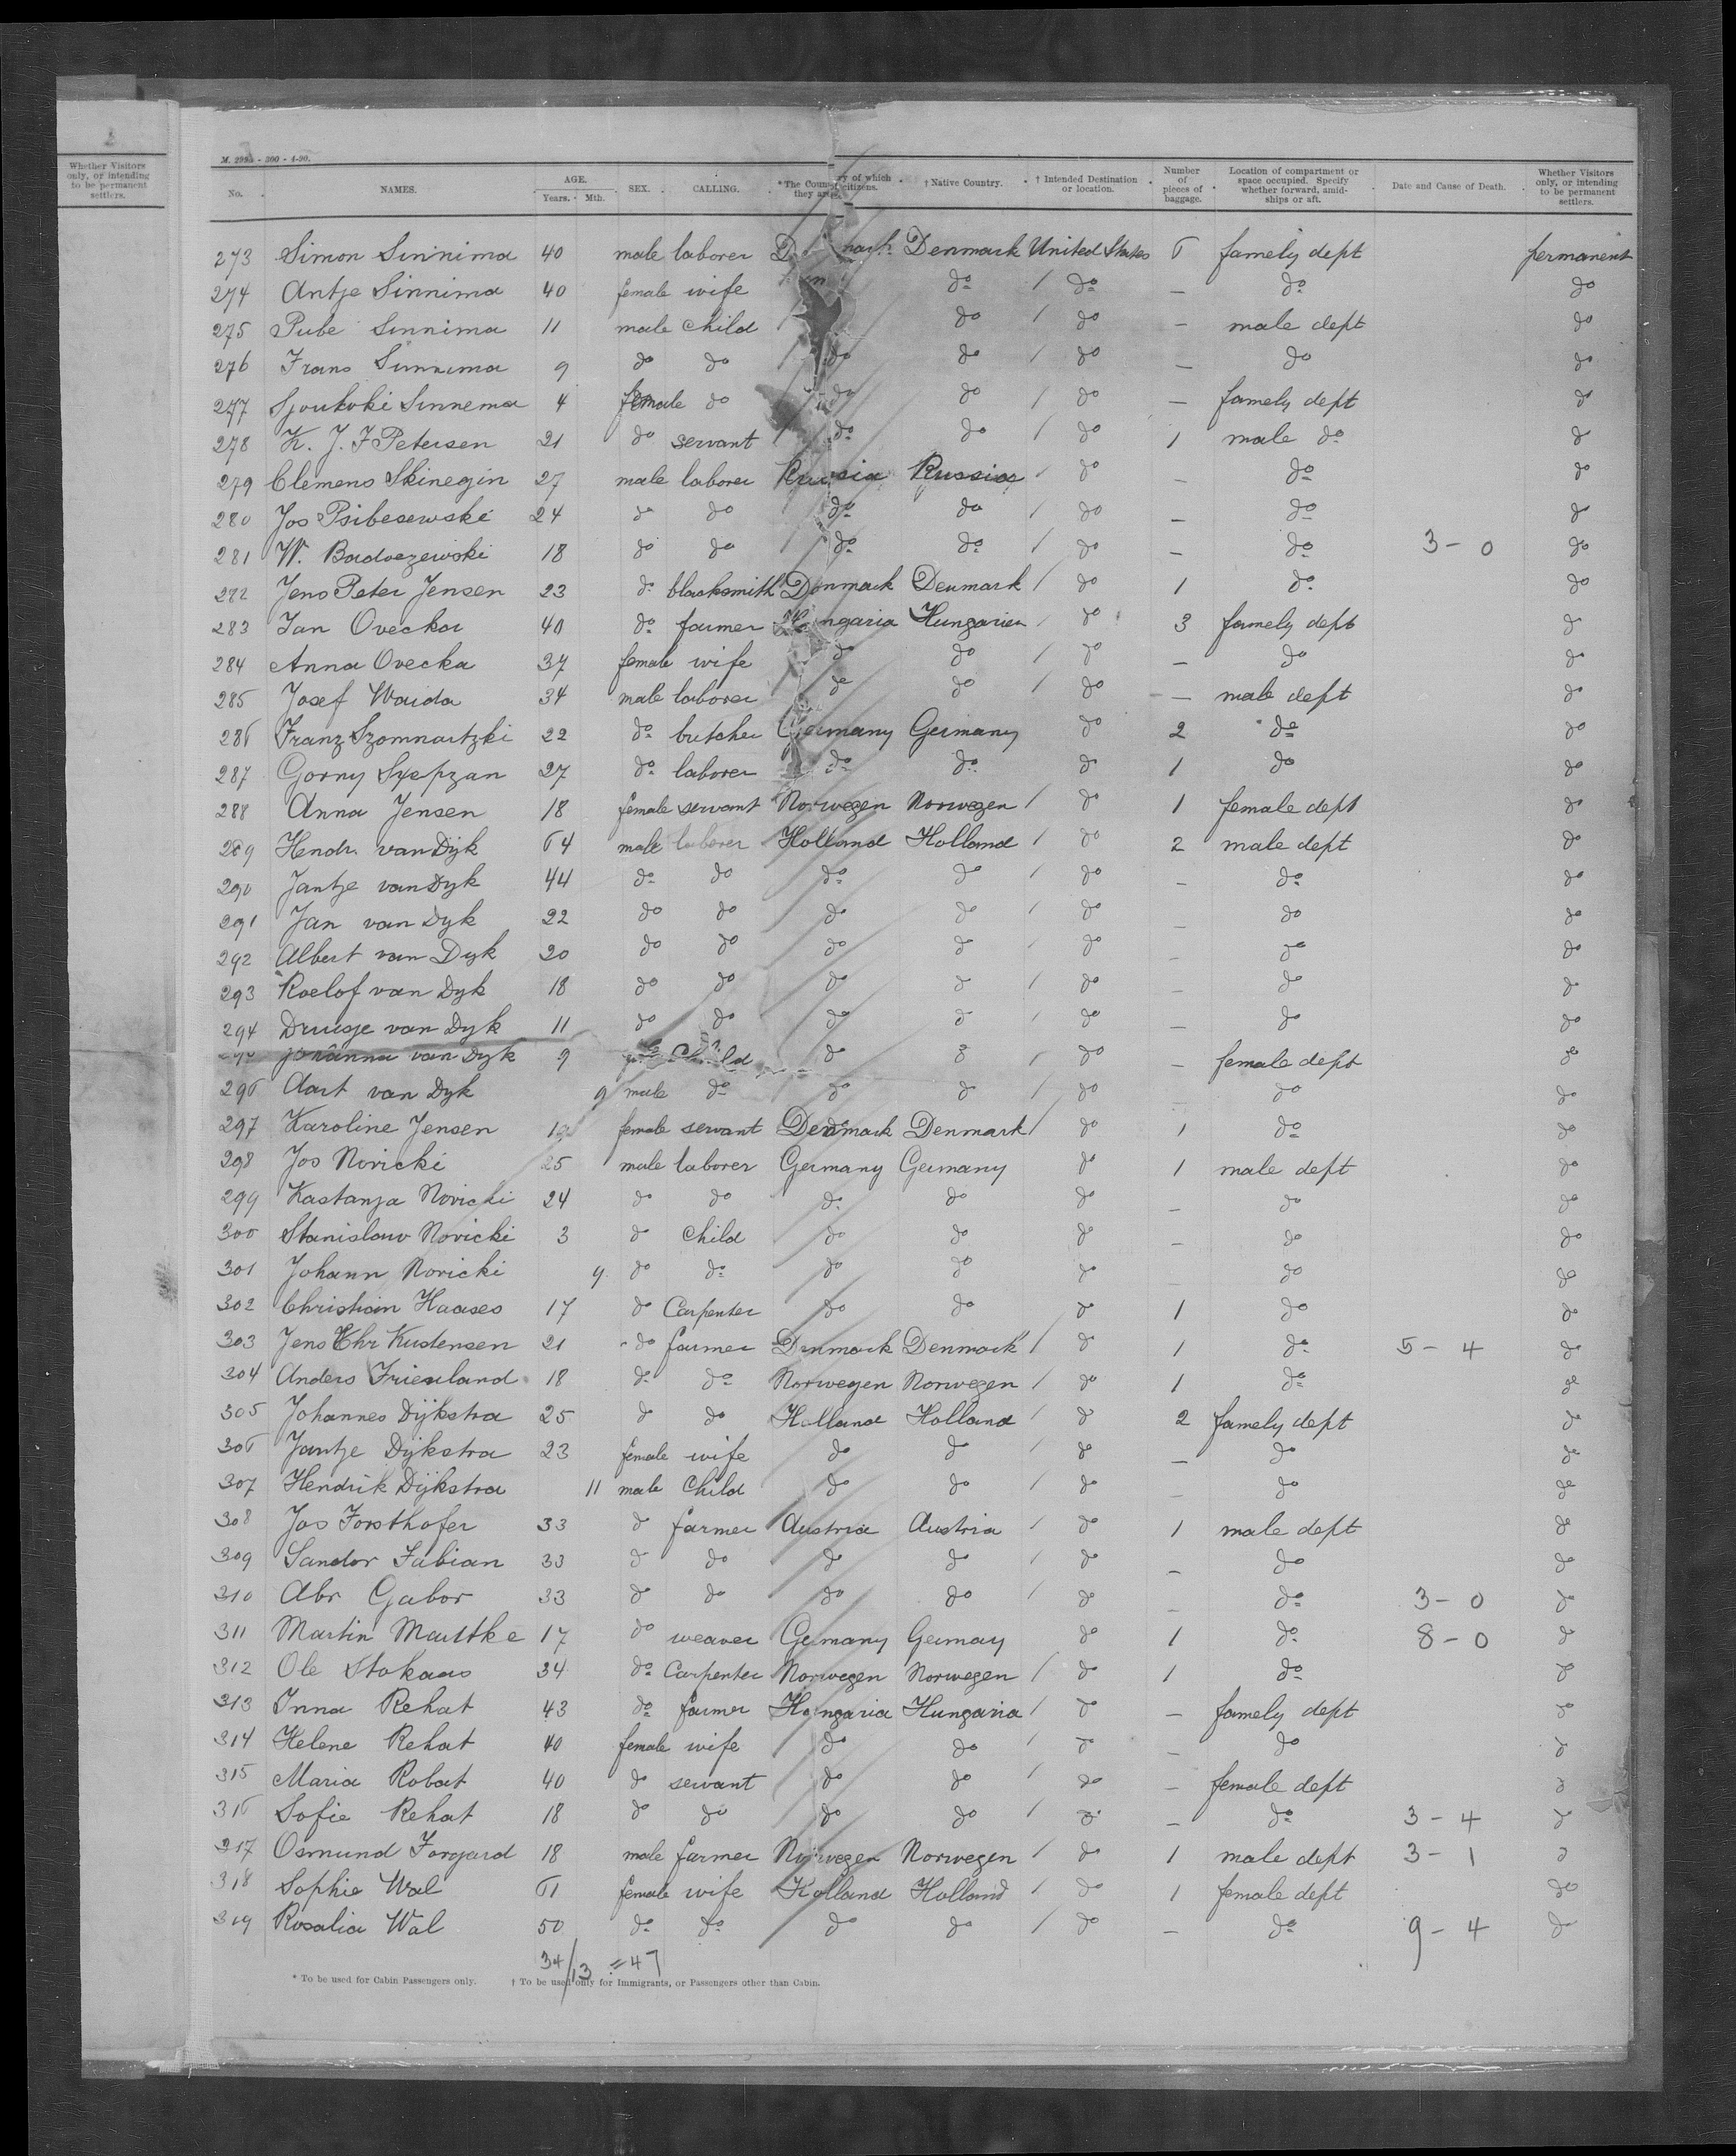 Whether Visitors only, or intending to be permanent settlers.
M. 299 - 300 - 4-90.
No. NAMES. AGE. Years. Mth. SEX. CALLING. * The Country of which they are citizens. † Native Country. † Intended Destination or location. Number of pieces of baggage. Location of compartment or space occupied. Specify whether forward, amidships or aft. Date and Cause of Death. Whether Visitors only, or intending to be permanent settlers.
273 Simon Sinnima 40 male laborer Denmark United States 6 famely dept permanent
274 Antje Sinnima 40 female wife do / do — do do
275 Pube Sinnima 11 male child do / do — male dept do
276 Frans Sinnima 9 do do do do / do — do do
277 Sjoukoki Sinnema 4 female do do do / do — famely dept do
278 K. J. F Petersen 21 do servant do do / do 1 male do do
279 Clemens Skinegin 27 male laborer Russia Russia / do — do do
280 Jos Psibesewski 24 do do do do / do — do do
281 W. 18 do do do do / do — do 3 - 0 do
282 Jens Peter Jensen 23 do blacksmith Denmark Denmark / do 1 do do
283 Jan Ovecka 40 do farmer Hungaria / do 3 famely dept do
284 Anna Ovecka 37 female wife do do / do — do do
285 Josef Waida 34 male laborer do do / do — male dept do
286 Franz Szomnartzki 22 do butcher Germany Germany do 2 do do
287 Gorny Syepzan 27 do laborer do do do 1 do do
288 Anna Jensen 18 female servant Norwegen Norwegen / do 1 female dept do
289 Hendr. van Dijk 64 male laborer Holland Holland / do 2 male dept do
290 Jantje van Dyk 44 do do do do / do - do do
291 Jan van Dyk 22 do do do do / do - do do
292 Albert van Dyk 20 do do do do / do - do do
293 Roelof van Dyk 18 do do do do / do - do do
294 Druisje van Dyk 11 do do do do / do — do do
Johanna van Dyk 9 Child do do / do — female dept do
296 Aart van Dyk 9 male do do do / do — do do
297 Karoline Jensen female servant Denmark Denmark / do 1 do do
298 Jos Novicki 25 male laborer Germany Germany do 1 male dept do
299 Kastanja Novicki 24 do do do do do — do do
300 Stanislauv Novicki 3 do Child do do do — do do
301 Johann Novicki 9 do do do do do — do do
302 Christian Haases 17 do Carpenter do do do 1 do do
303 Jens Chr Kustensen 21 do farmer Denmark Denmark / do 1 do 5 - 4 do
304 Anders Friesland 18 do do Norwegen Norwegen / do 1 do do
305 Johannes Dijkstra 25 do do Holland Holland / do 2 famely dept do
306 Jantje Dijkstra 23 female wife do do / do — do do
307 Hendrik Dijkstra 11 male Child do do / do — do do
308 Jos Forsthofer 33 do farmer Austria Austria / do 1 male dept do
309 Sandor Fabian 33 do do do do / do — do do
310 Abr Gabor 33 do do do do / do — do 3 - 0 do
311 Martin Marttke 17 do weaver Germany Germany do 1 do 8 - 0 do
312 Ole Stokaas 34 do Carpenter Norwegen Norwegen / do 1 do do
313 Inna Rehat 43 do farmer Hungaria Hungaria / do — famely dept do
314 Helene Rehat 40 female wife do do / do — do do
315 Maria Robat 40 do servant do do / do — female dept do
316 Sofie Rehat 18 do do do do / do — do 3 - 4 do
317 Osmund Forgard 18 male farmer Norwegen Norwegen / do 1 male dept 3 - 1 do
318 Sophie Wal 61 female wife Holland Holland / do 1 female dept do
319 Rosalia Wal 50 do do do do / do — do 9 - 4 do
34/13 = 47
* To be used for Cabin Passengers only. † To be used only for Immigrants, or Passengers other than Cabin.